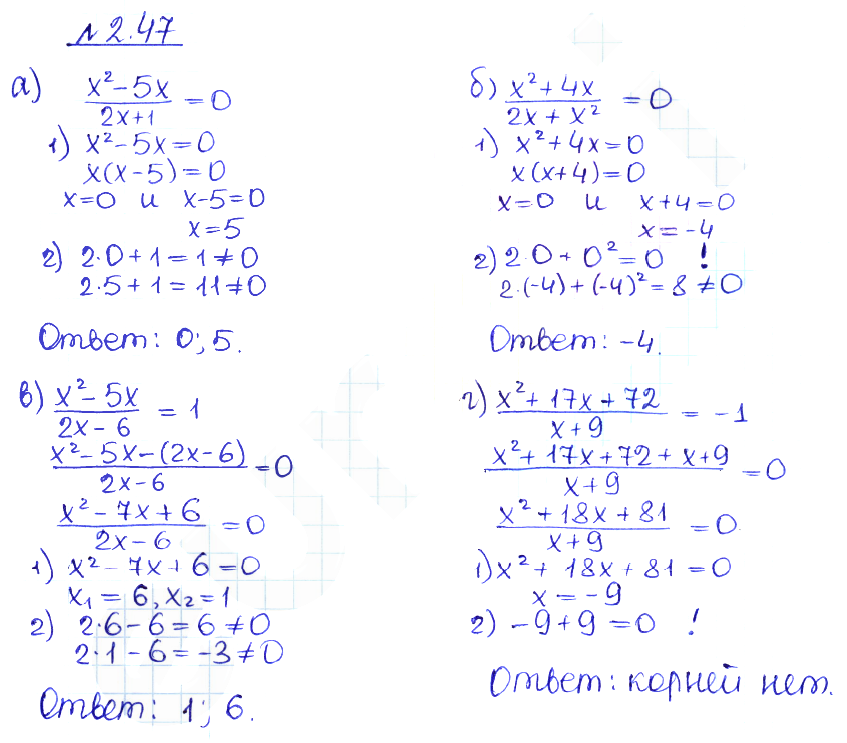 № 2.47
а) (x² − 5x)/(2x+1) = 0
1) x² − 5x = 0
x(x − 5) = 0
x=0 и x-5=0
x=5
2) 2·0 + 1 = 1 ≠ 0
2·5 + 1 = 11 ≠ 0
Ответ: 0; 5.
б) (x² + 4x)/(2x + x²) = 0
1) x² + 4x = 0
x(x+4) = 0
x=0 и x+4=0
x = -4
2) 2·0 + 0² = 0 !
2·(-4) + (-4)² = 8 ≠ 0
Ответ: -4.
в) (x² − 5x)/(2x − 6) = 1
(x² − 5x − (2x − 6))/(2x − 6) = 0
(x² − 7x + 6)/(2x − 6) = 0
1) x² − 7x + 6 = 0
x₁ = 6, x₂ = 1
2) 2·6 − 6 = 6 ≠ 0
2·1 − 6 = -3 ≠ 0
Ответ: 1; 6.
г) (x² + 17x + 72)/(x+9) = -1
(x² + 17x + 72 + x + 9)/(x+9) = 0
(x² + 18x + 81)/(x+9) = 0
1) x² + 18x + 81 = 0
x = -9
2) -9 + 9 = 0 !
Ответ: корней нет.